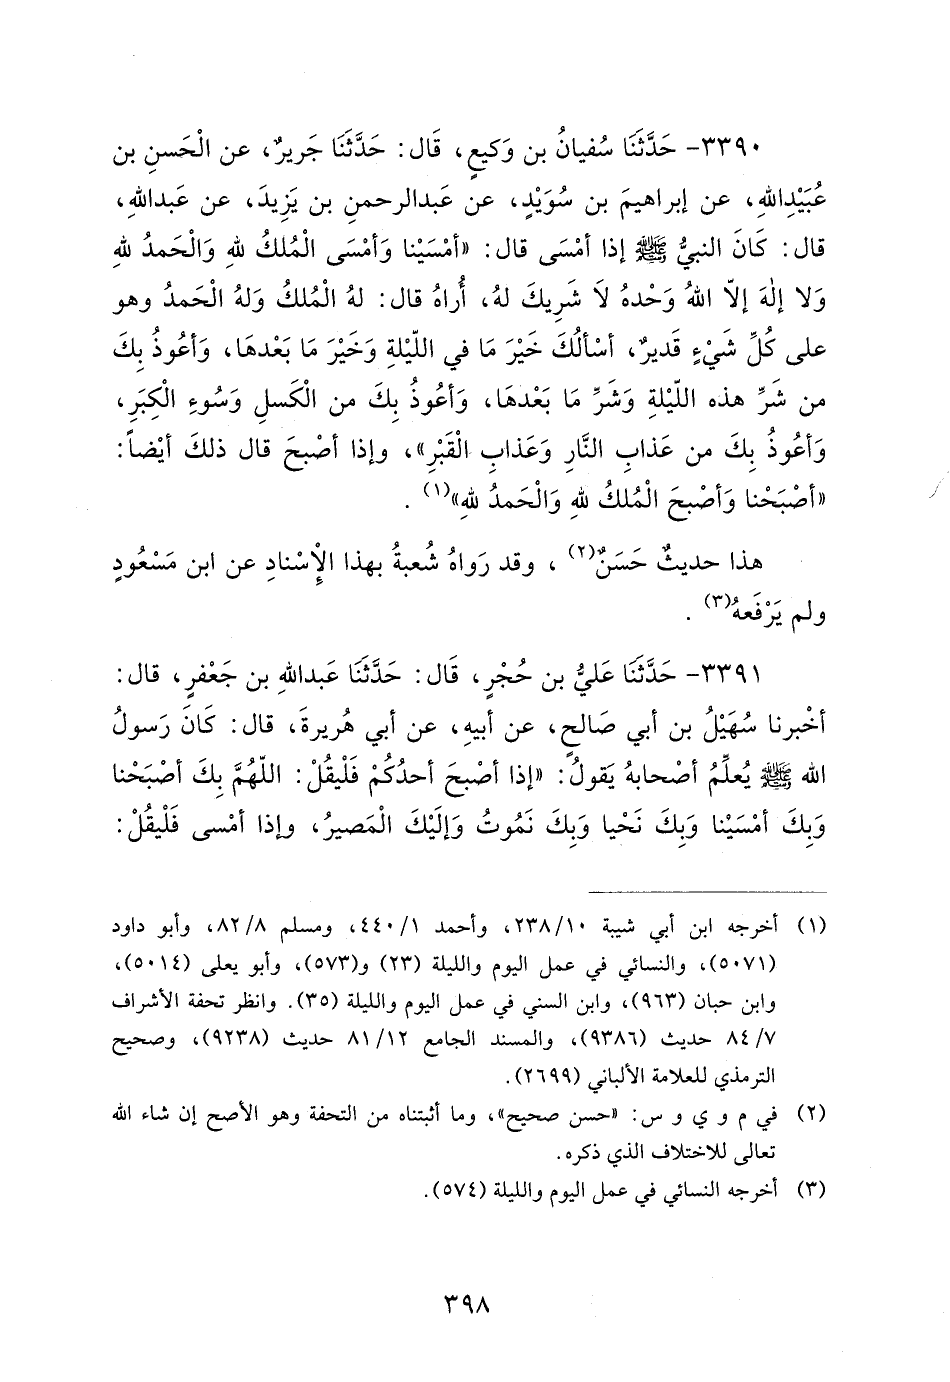 ٣٣٩٠- حَدَّثَنَا سُفيانُ بن وَكيعٍ، قَال: حَدَّثَنَا جَريرٌ، عن الْحَسنِ بن
عُبَيْدِاللهِ، عن إبراهيمَ بن سُوَيْدٍ، عن عَبدالرحمنِ بن يَزِيدَ، عن عَبداللهِ،
قال: كَانَ النبيُّ ﷺ إذا أمْسَى قال: «أمْسَيْنا وَأمْسَى الْمُلكُ للهِ وَالْحَمدُ للهِ
وَلا إلٰهَ إلّا اللهُ وَحْدهُ لاَ شَرِيكَ لهُ، أُراهُ قال: لهُ الْمُلكُ وَلهُ الْحَمدُ وهو
على كُلِّ شَيْءٍ قَديرٌ، أسْألُكَ خَيْرَ مَا في اللّيْلةِ وَخَيْرَ مَا بَعْدهَا، وَأعُوذُ بِكَ
من شَرِّ هذه اللّيْلةِ وَشَرِّ مَا بَعْدهَا، وَأعُوذُ بِكَ من الْكَسلِ وَسُوءِ الْكِبَرِ،
وَأعُوذُ بِكَ من عَذابِ النَّارِ وَعَذابِ الْقَبْرِ»، وإذا أصْبحَ قال ذلكَ أيْضاً:
«أصْبَحْنا وَأصْبحَ الْمُلكُ للهِ وَالْحَمدُ للهِ»(١) .
هذا حديثٌ حَسَنٌ(٢) ، وقد رَواهُ شُعبةُ بهذا الإسْنادِ عن ابن مَسْعُودٍ
ولم يَرْفَعهُ(٣) .
٣٣٩١- حَدَّثَنَا عَليُّ بن حُجْرٍ، قَال: حَدَّثَنَا عَبدالله بن جَعْفرٍ، قال:
أخْبرنا سُهَيْلُ بن أبي صَالحٍ، عن أبيهِ، عن أبي هُريرةَ، قال: كَانَ رَسولُ
الله ﷺ يُعلِّمُ أصْحابهُ يَقولُ: «إذا أصْبحَ أحدُكُمْ فَلْيقُلْ: اللّهُمَّ بِكَ أصْبَحْنا
وَبِكَ أمْسَيْنا وَبِكَ نَحْيا وَبِكَ نَمُوتُ وَإلَيْكَ الْمَصيرُ، وإذا أمْسى فَلْيقُلْ:
(١) أخرجه ابن أبي شيبة ٢٣٨/١٠، وأحمد ٤٤٠/١، ومسلم ٨٢/٨، وأبو داود
(٥٠٧١)، والنسائي في عمل اليوم والليلة (٢٣) و(٥٧٣)، وأبو يعلى (٥٠١٤)،
وابن حبان (٩٦٣)، وابن السني في عمل اليوم والليلة (٣٥). وانظر تحفة الأشراف
٨٤/٧ حديث (٩٣٨٦)، والمسند الجامع ٨١/١٢ حديث (٩٢٣٨)، وصحيح
الترمذي للعلامة الألباني (٢٦٩٩).
(٢) في م و ي و س: «حسن صحيح»، وما أثبتناه من التحفة وهو الأصح إن شاء الله
تعالى للاختلاف الذي ذكره.
(٣) أخرجه النسائي في عمل اليوم والليلة (٥٧٤).
٣٩٨